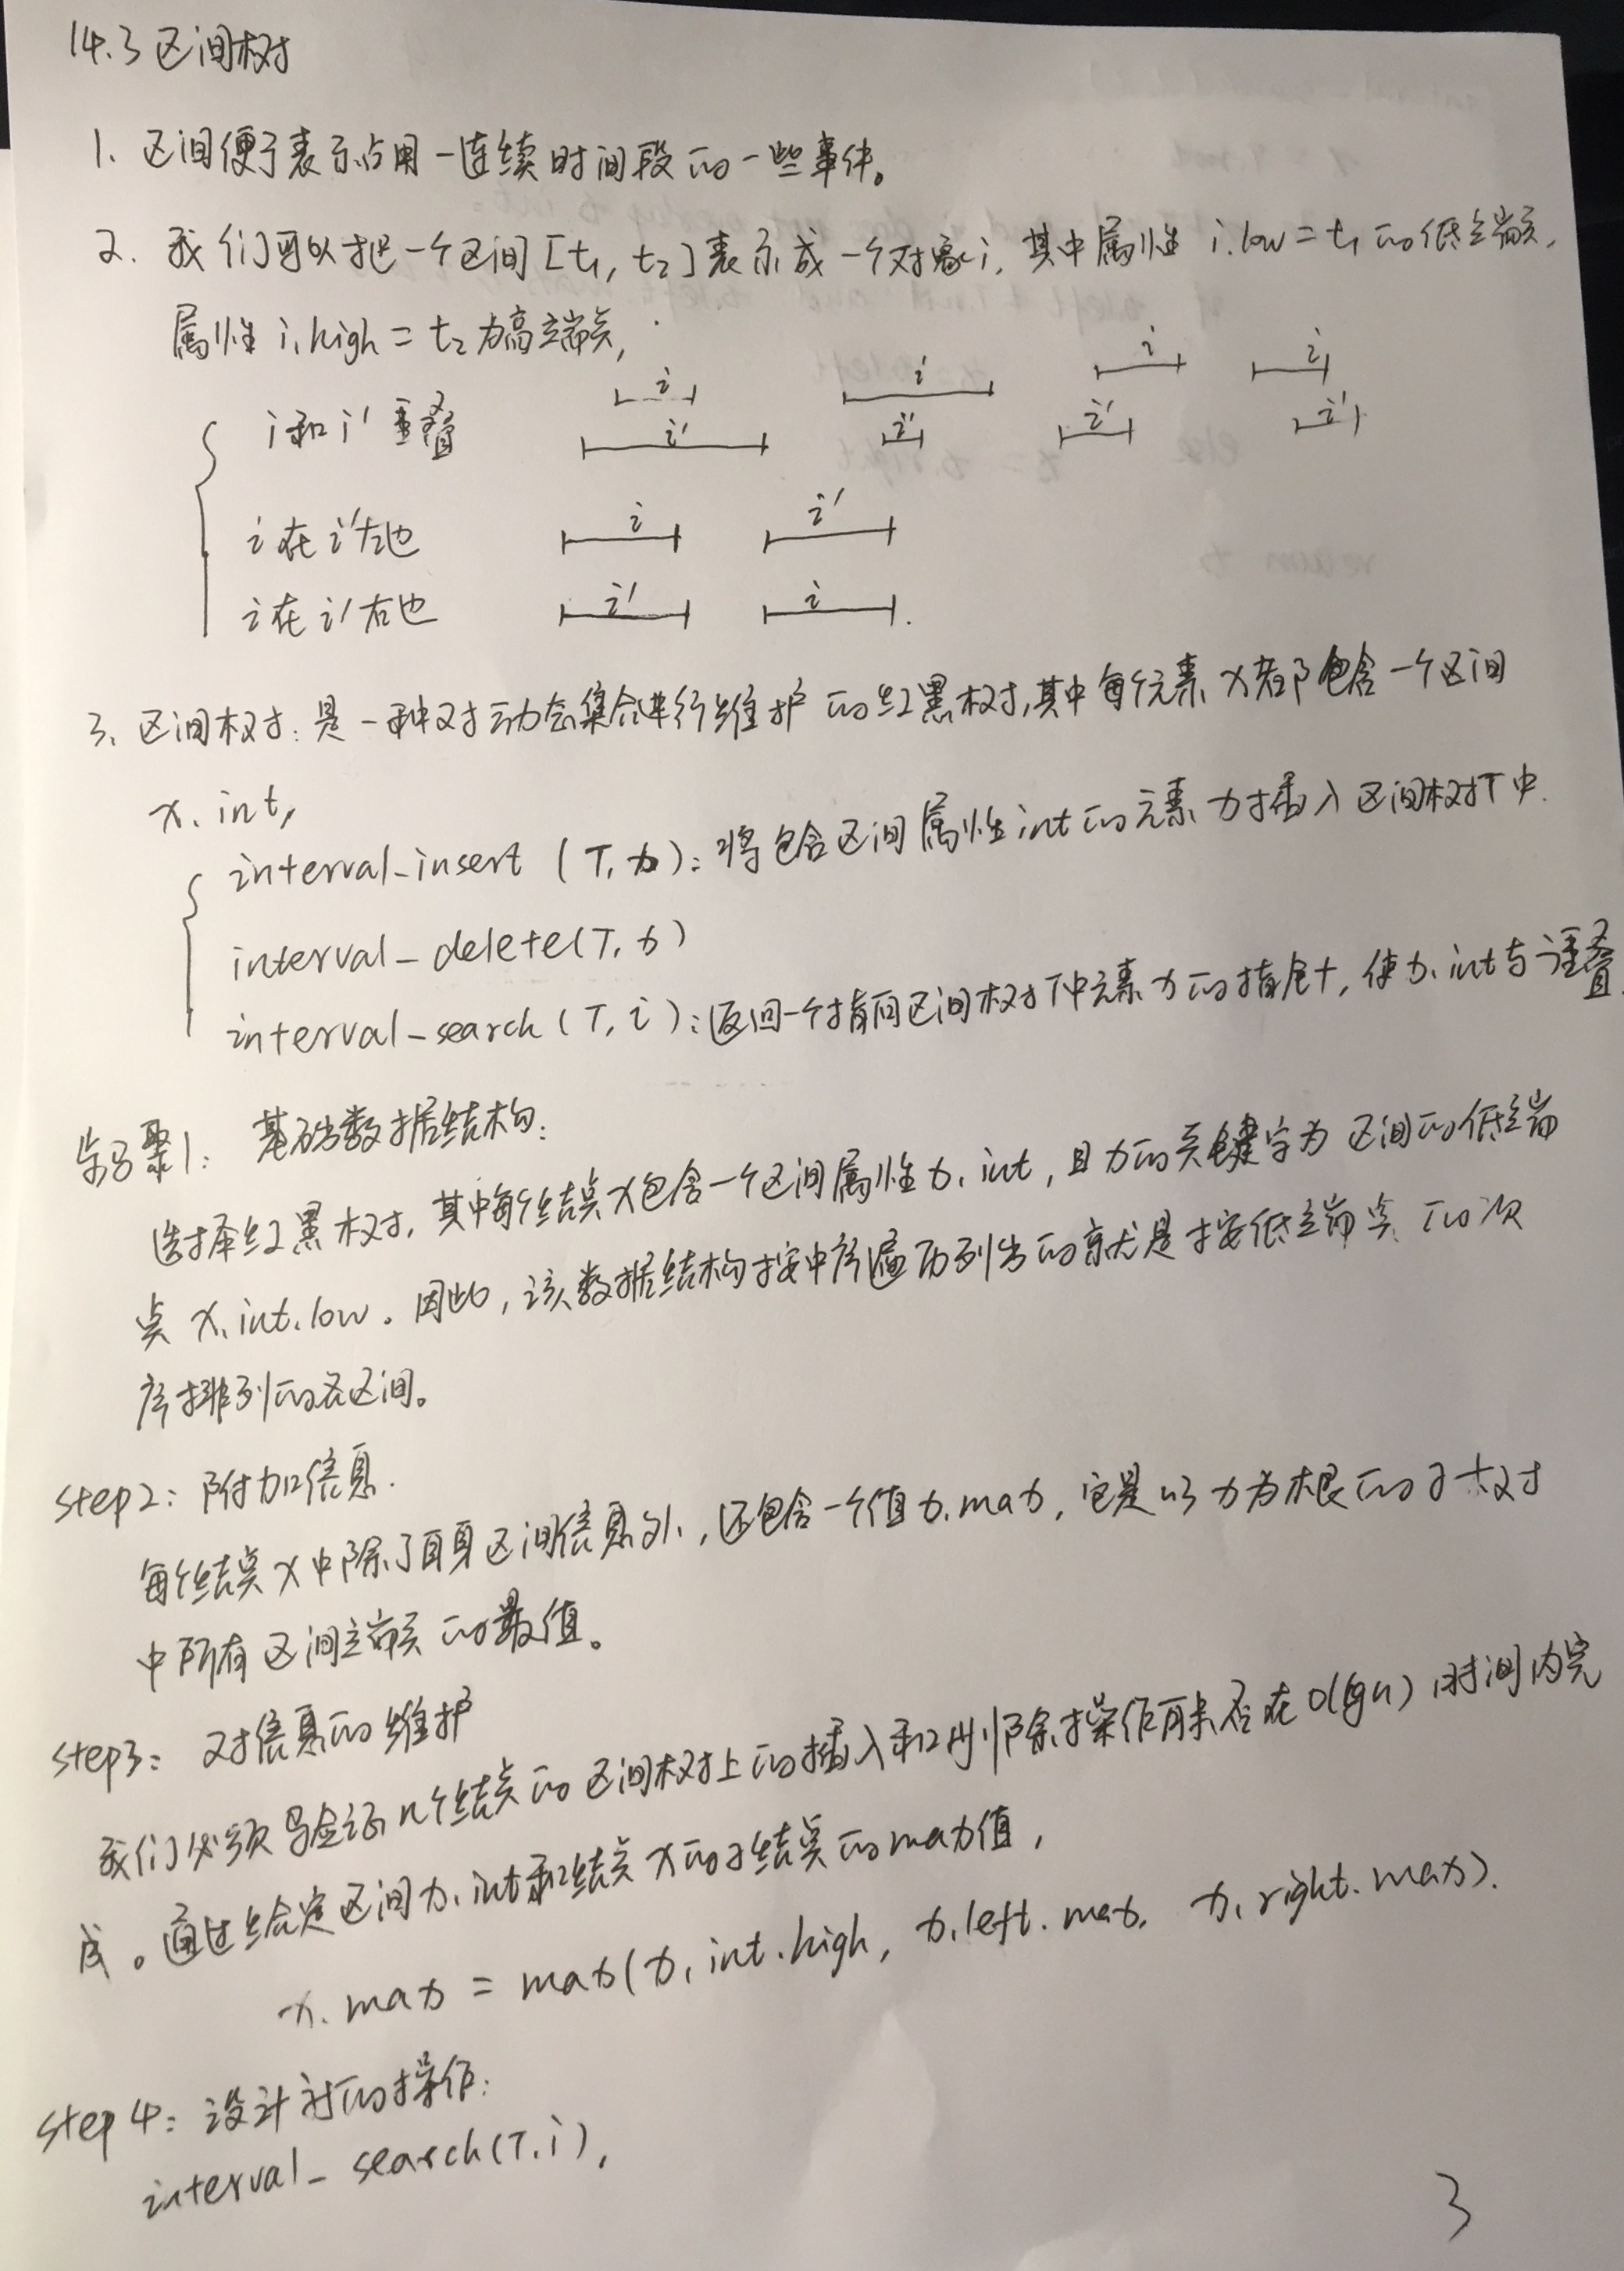 14.3 区间树
1. 区间便于表示占用一连续时间段的一些事件。
2. 我们可以把一个区间[t₁, t₂]表示成一个对象i, 其中属性 i.low = t₁ 的低端点,
属性 i.high = t₂ 为高端点,
i和i' 重叠 i i' i i' i i' i i'
i在i'左边 i i'
i在i'右边 i' i
3. 区间树: 是一种对动态集合进行维护的红黑树, 其中每个元素 x 都包含一个区间
x.int,
interval_insert (T, x): 将包含区间属性int的元素 x 插入区间树T中.
interval_delete(T, x)
interval_search (T, i): 返回一个指向区间树T中元素 x 的指针, 使 x.int与i重叠.
步骤1: 基础数据结构:
选择红黑树, 其中每个结点x包含一个区间属性 x.int, 且 x 的关键字为 区间的低端
点 x.int.low. 因此, 该数据结构按中序遍历列出的就是按低端点的次
序排列的各区间。
step2: 附加信息.
每个结点 x 中除了自身区间信息外, 还包含一个值 x.max, 它是以 x 为根的子树
中所有区间端点的最值。
step3: 对信息的维护
我们必须验证n个结点的区间树上的插入和删除操作能否在O(lgn)时间内完
成。通过给定区间 x.int和结点 x 的子结点的max值,
x.max = max(x.int.high, x.left.max, x.right.max).
step 4: 设计新的操作:
interval_search(T.i),
3